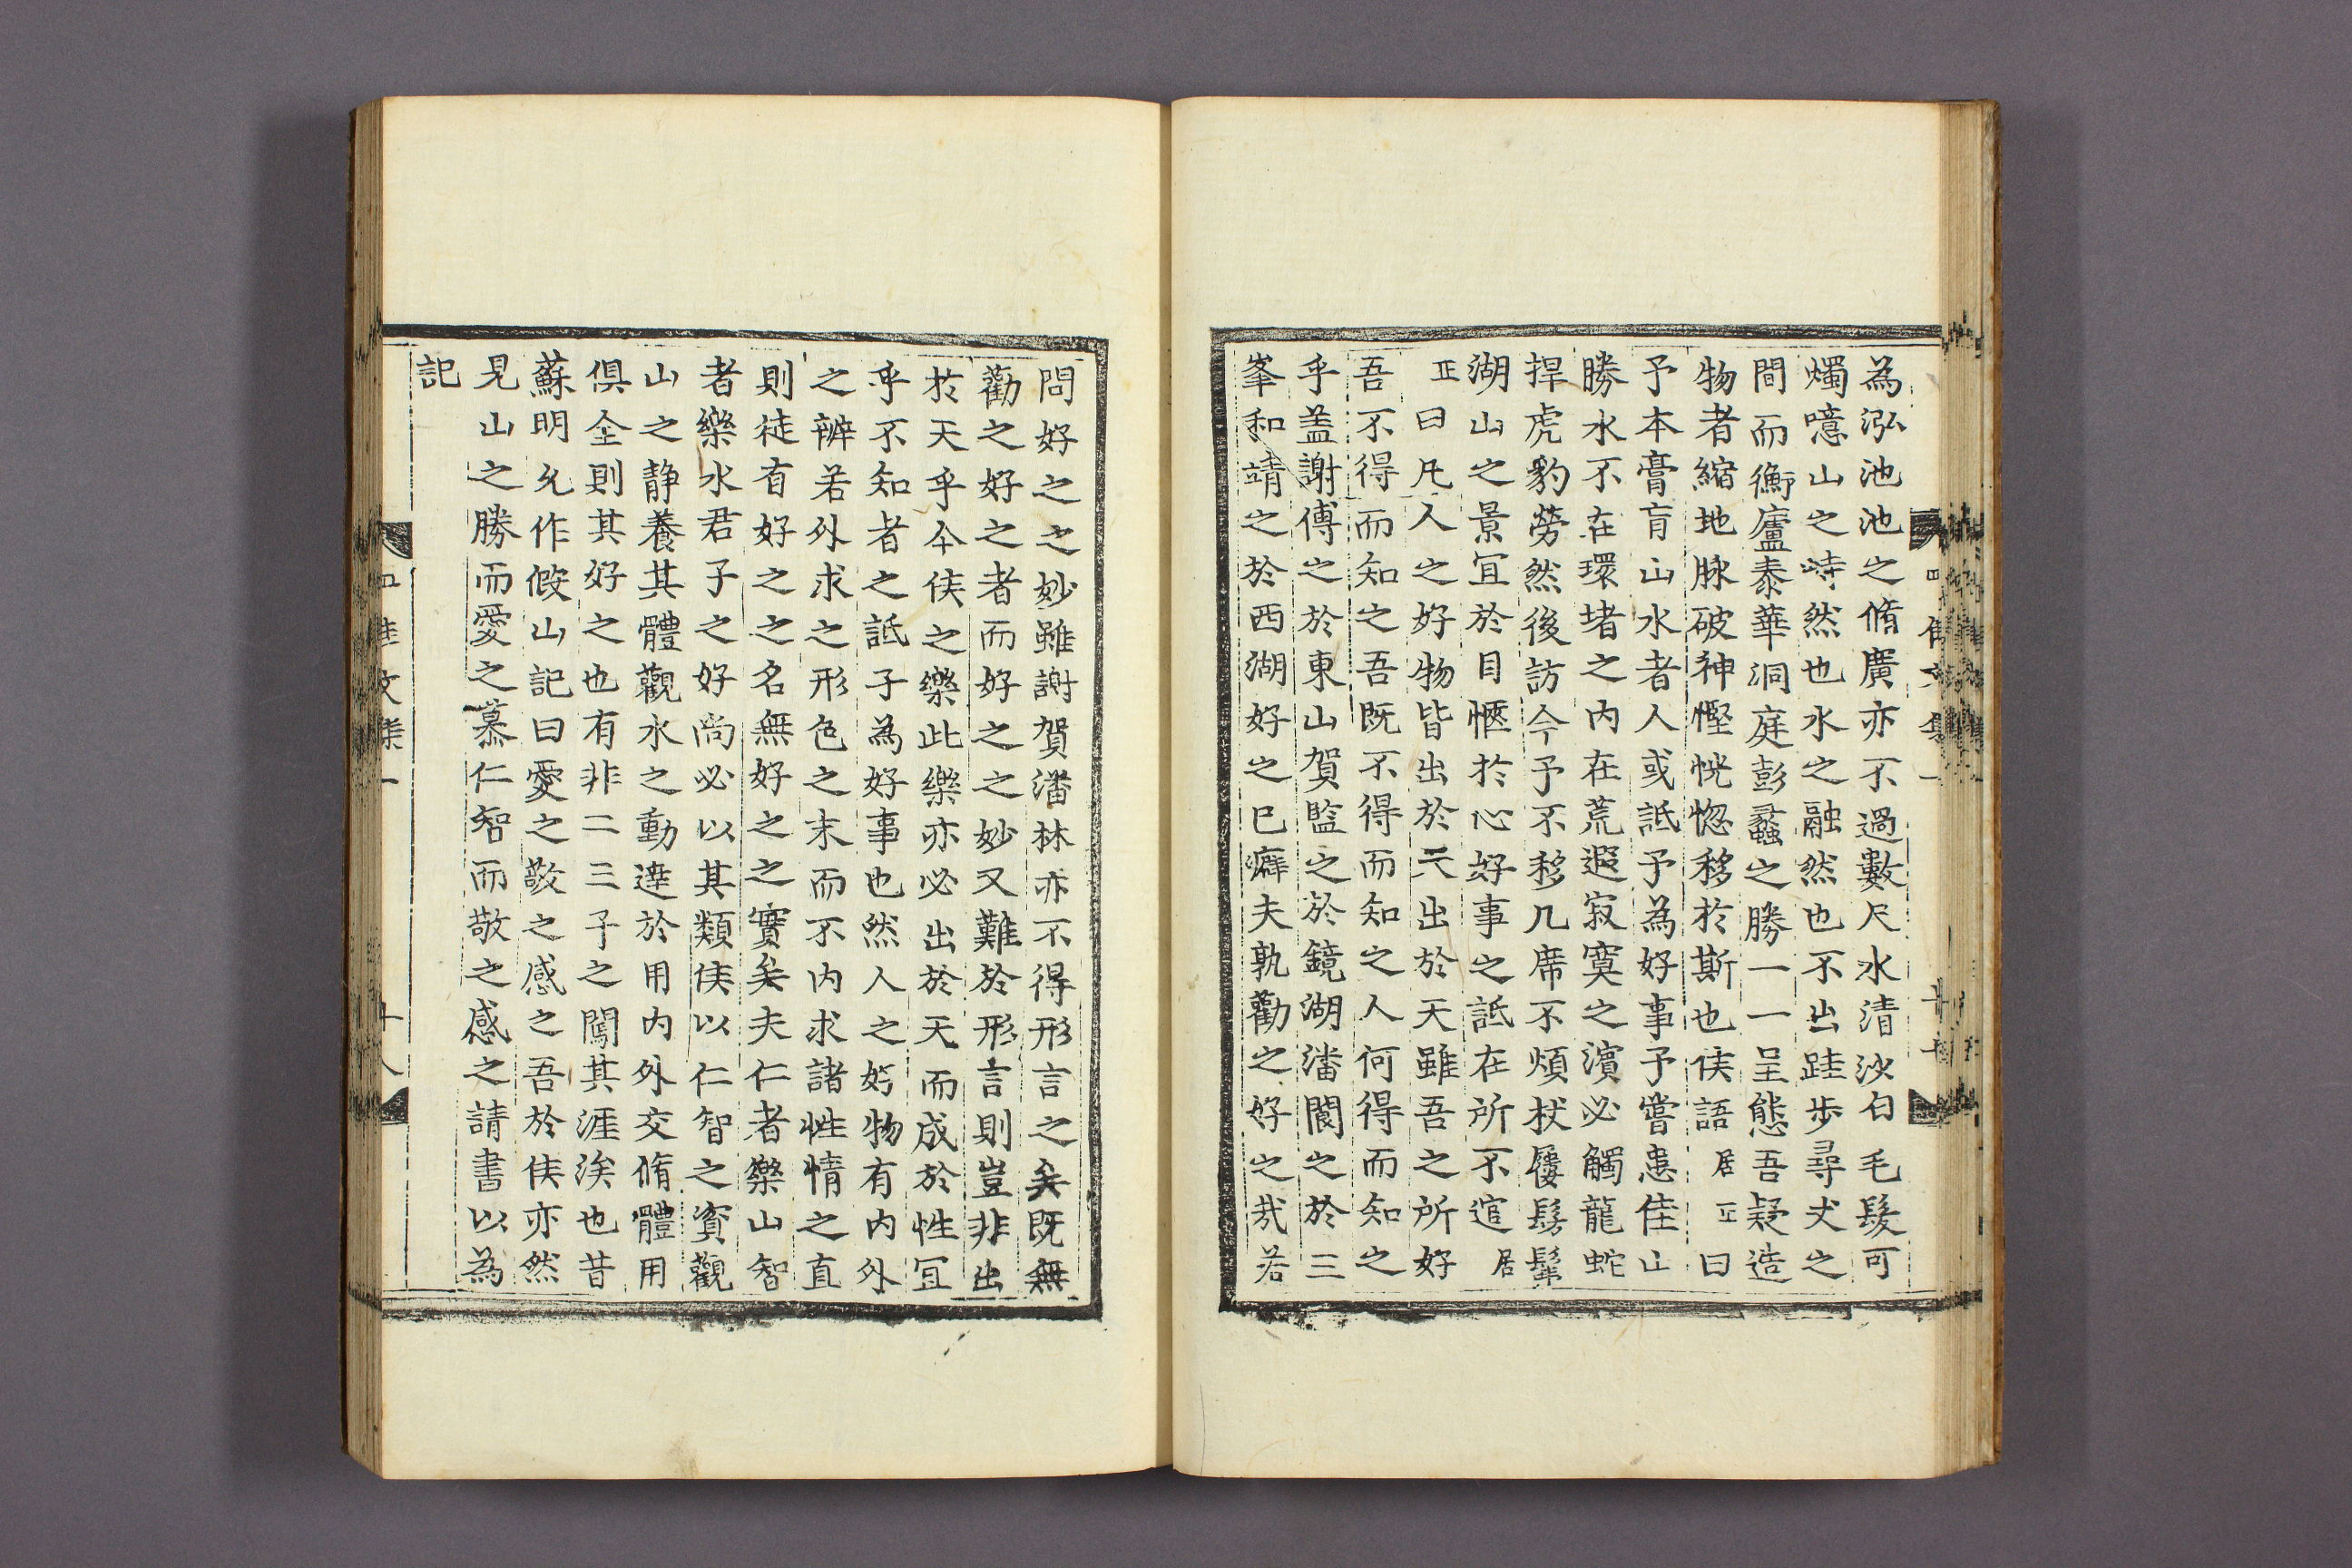 為泓池池之脩廣亦不過數尺水清沙白毛髮可
燭噫山之峙然也水之融然也不出跬步尋丈之
間而衡廬泰華洞庭彭蠡之勝一一呈態吾疑造
物者縮地脉破神慳恍惚移於斯也侯語居正曰
予本膏肓山水者人或詆予為好事予嘗患佳山
勝水不在環堵之內在荒遐寂寞之濱必觸龍蛇
捍虎豹勞然後訪今予不移几席不煩杖屨髣髴
湖山之景宜於目愜於心好事之詆在所不逭居
正曰凡人之好物皆出於天出於天雖吾之所好
吾不得而知之吾既不得而知之人何得而知之
乎盖謝傅之於東山賀監之於鏡湖潘閬之於三
峯和靖之於西湖好之已癖夫孰勸之好之㢤若
問好之之妙雖謝賀潘林亦不得形言之矣既無
勸之好之者而好之之妙又難於形言則豈非出
於天乎今侯之樂此樂亦必出於天而成於性宜
乎不知者之詆子為好事也然人之好物有內外
之辨若外求之形色之末而不內求諸性情之直
則徒有好之之名無好之之實矣夫仁者樂山智
者樂水君子之好尚必以其類侯以仁智之資觀
山之静養其體觀水之動達於用內外交脩體用
俱全則其好之也有非二三子之闖其涯涘也昔
蘇明允作假山記曰愛之敬之感之吾於侯亦然
見山之勝而愛之慕仁智而敬之感之請書以為
記